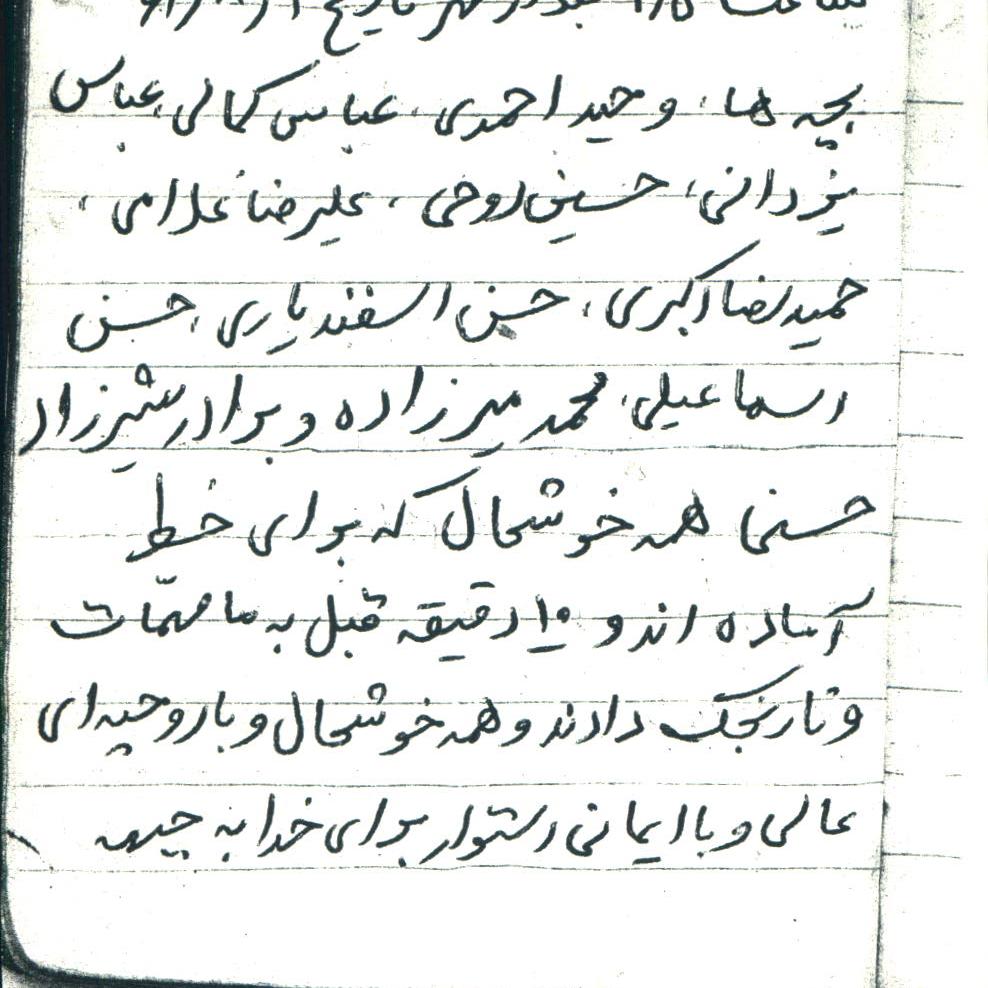 ساعت
بچه ها، وحید احمدی، عباس کمالی، عباس
یزدانی، حسین روحی، علیرضا غلامی،
حمیدرضا اکبری، حسن اسفندیاری، حسن
اسماعیلی، محمد میرزاده و برادر شیرزاد
حسنی همه خوشحال که برای خط
آماده اند و ۱۰ دقیقه قبل به ما مهمّات
و نارنجک دادند و همه خوشحال و با روحیه ای
عالی و با ایمانی استوار برای خدا به جبهه